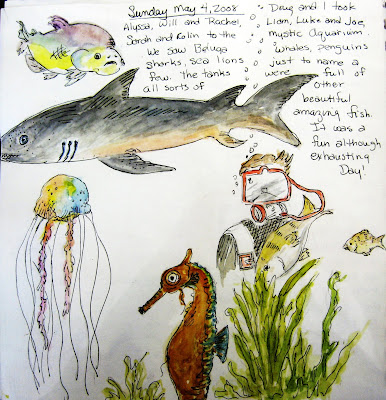 Sunday May 4, 2008 Doug and I took
Alyssa, Will and Rachel, Liam, Luke and Joe,
Sarah and Kolin to the mystic Aquarium.
We saw Beluga whales, penguins
sharks, sea lions just to name a
few. The tanks were full of
all sorts of other
beautiful
amazing fish.
It was a
fun although
exhausting
Day!